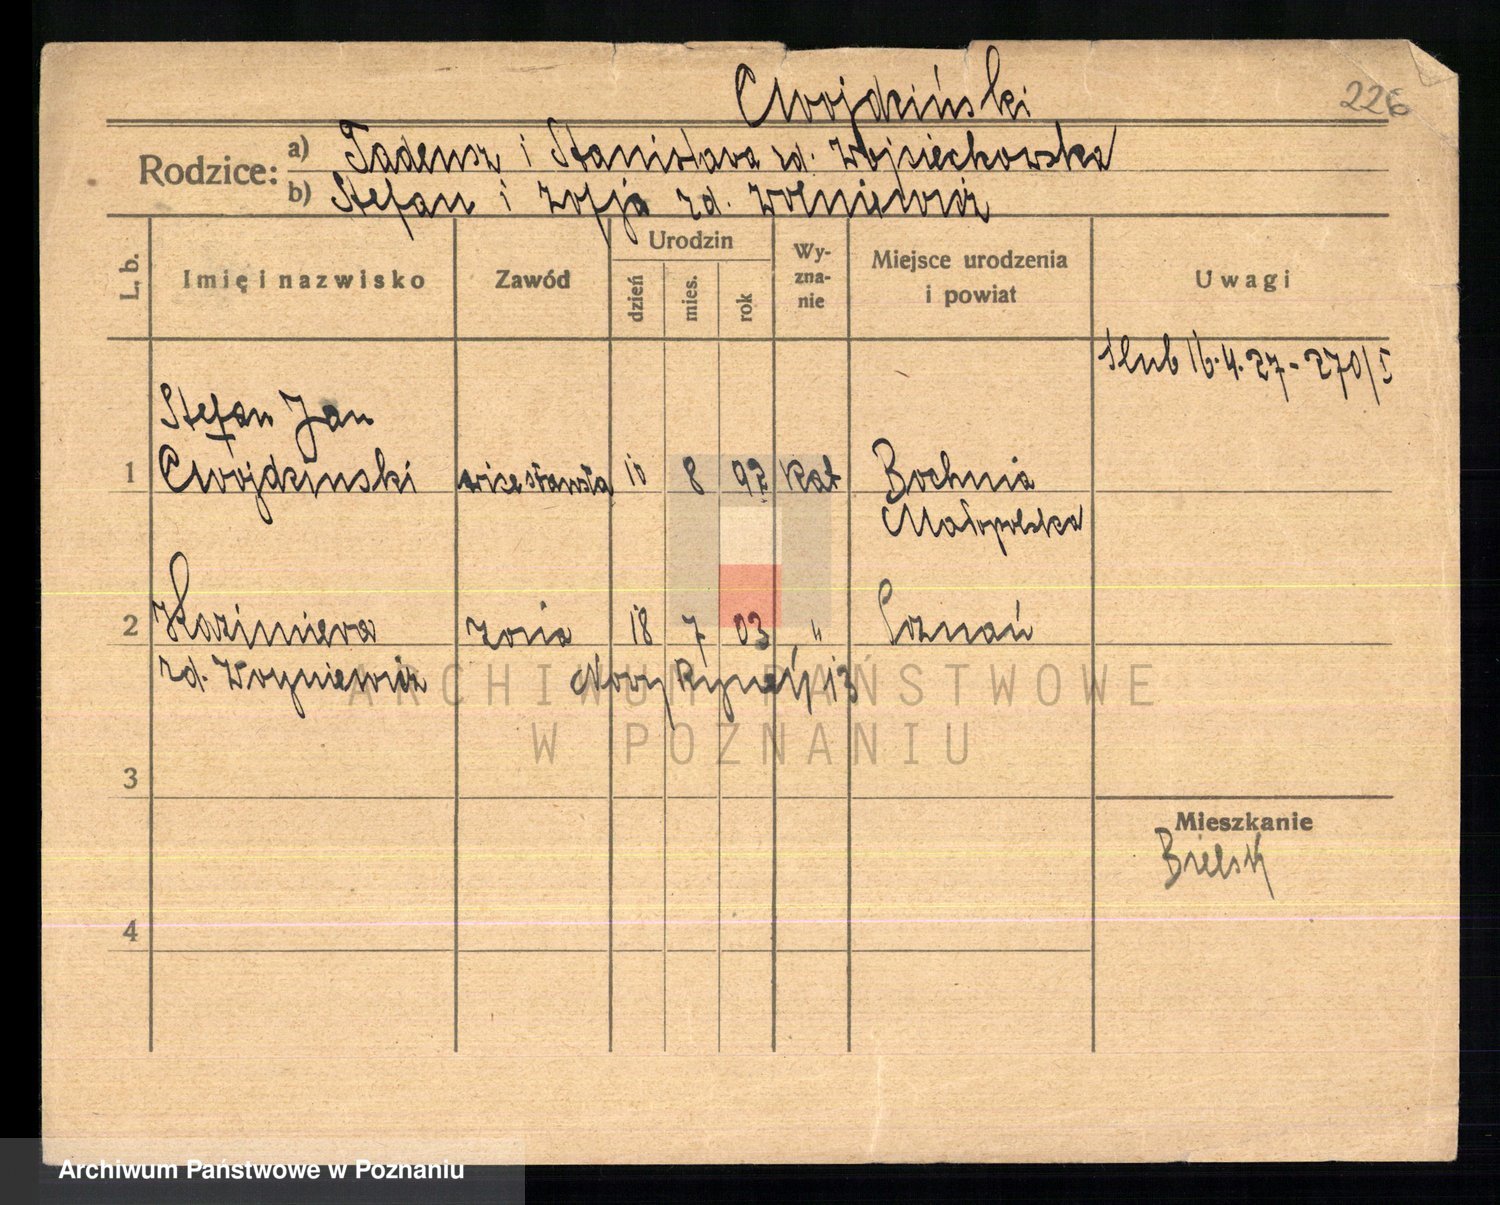 Cwojdziński
226
Rodzice: a) Tadeusz i Stanisława zd. Wojciechowska
b) Stefan i Zofja zd. Wolniewicz
L. b.
Imię i nazwisko
Zawód
Urodzin
dzień
mies.
rok
Wy-
zna-
nie
Miejsce urodzenia
i powiat
Uwagi
ślub 16.4.27 - 270/I
Stefan Jan
1 Cwojdzinski 10 8 97 kat Bochnia
Małopolska
2 Kazimiera żona 18 7 03 " Poznań
zd. Wolniewicz Nowy Rynek 13
ARCHIWUM PAŃSTWOWE
W POZNANIU
3
Mieszkanie
Bielsk
4
Archiwum Państwowe w Poznaniu